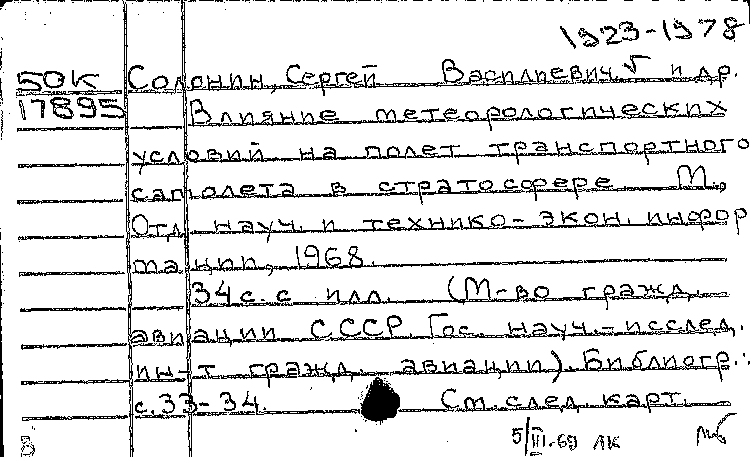 1923-1978
50К Солонин, Сергей Васильевич. √ и др.
17895 Влияние метеорологических
условий на полет транспортного
самолета в стратосфере М.,
Отд. науч. и технико-экон. инфор
мации, 1968.
34 с. с илл. (М-во гражд.
авиации СССР. Гос. науч.-исслед.
ин-т гражд. авиации). Библиогр.:
с. 33-34. См. след. карт.
5/III-69 ЛК